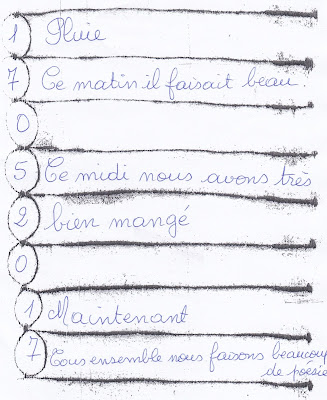 1 Pluie
7 Ce matin il faisait beau.
0
5 Ce midi nous avons très
2 bien mangé
0
1 Maintenant
7 Tous ensemble nous faisons beaucoup
de poésie